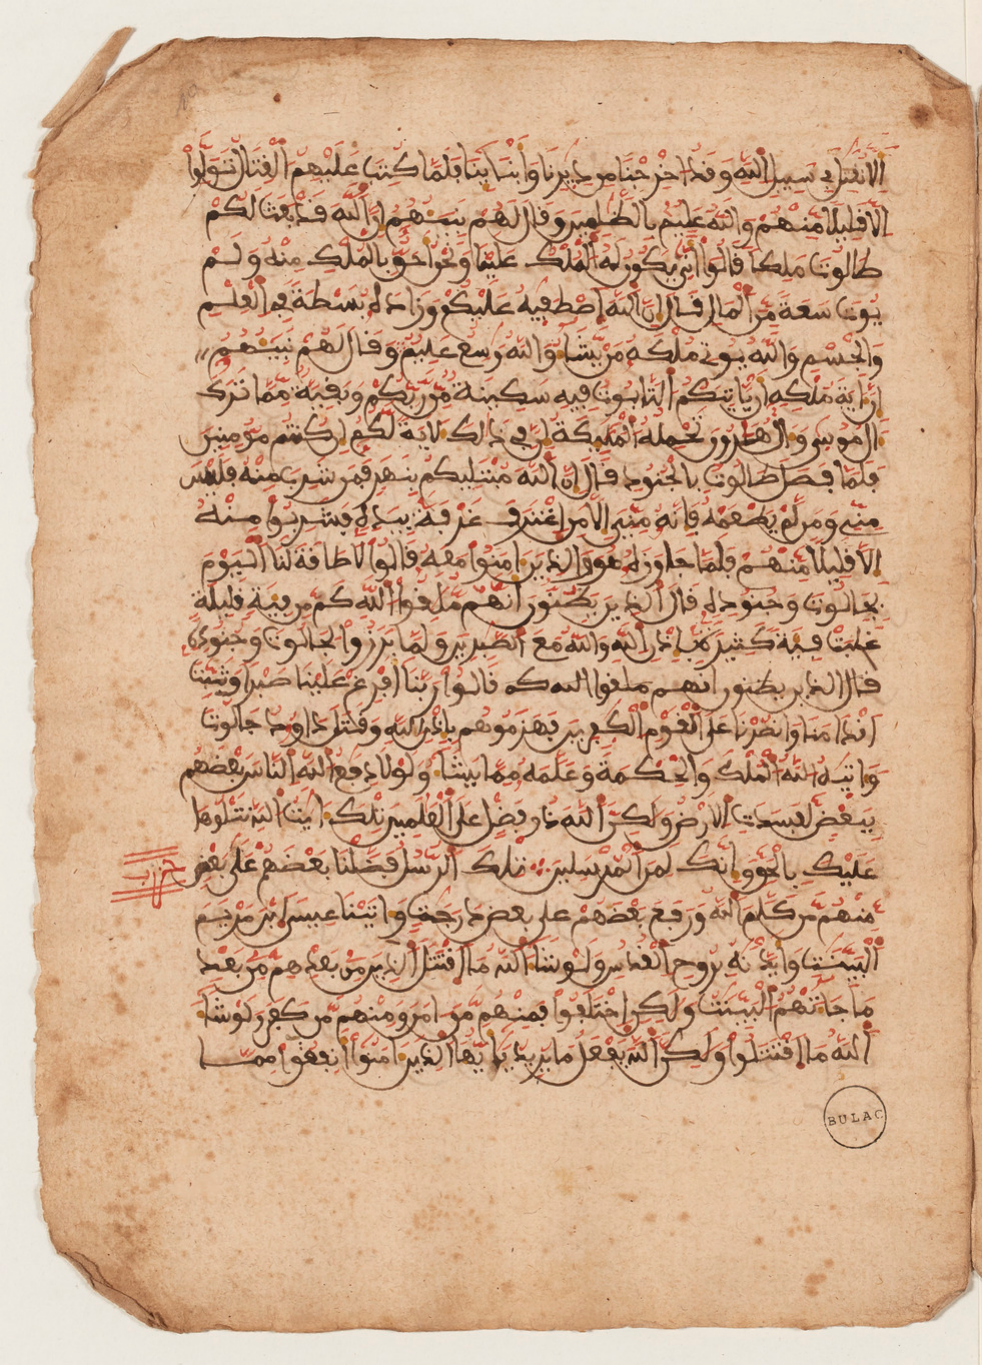 الا نقتل في سبيل الله وقد اخرجنا من ديرنا وابنآينا فلما كتب عليهم القتال تولوا
الا قليلا منهم والله عليم بالظلمين وقال لهم نبيـهم ان الله قد بعث لكم
طالوت ملكا قالوا انى يكون له الملك علينا ونحن احق بالملك منه ولم
يوت سعة من المال قال ان الله اصطفيه عليكم وزاده بسطة في العلم
والجسم والله يوتي ملكه من يشا والله وسع عليم وقال لهم نبيـهم
ان اية ملكه ان ياتيكم التابوت فيه سكينة من ربكم وبقية مما ترك
ال موسى وال هرون تحمله المليكة ان في ذالك لاية لكم ان كنتم مومنين
فلما فصل طالوت بالجنود قال ان الله مبتليكم بنهر فمن شرب منه فليس
مني ومن لم يطعمه فانه مني الا من اغترف غرفة بيده فشربوا منه
الا قليلا منهم فلما جاوزه هو والذين امنوا معه قالوا لا طاقة لنا اليوم
بجالوت وجنوده قال الذين يظنون انهم ملقوا الله كم من فية قليلة
غلبت فية كثيرة باذن الله والله مع الصبرين ولما برزوا لجالوت وجنوده
قال الذين يظنون انهم ملقوا الله كم قالوا ربنا افرغ علينا صبرا وثبت
اقدامنا وانصرنا على القوم الكفرين فهزموهم باذن الله وقتل داوود جالوت
واتيه الله الملك والحكمة وعلمه مما يشا ولولا دفع الله الناس بعضهم
ببعض لفسدت الارض ولكن الله ذو فضل على العلمين تلك ايت الله نتلوها
عليك بالحق وانك لمن المرسلين تلك الرسل فضلنا بعضهم على بعض
حزب
منهم من كلم الله ورفع بعضهم على بعض درجت واتينا عيسى ابن مريم
البينت وايدنه بروح القدس ولو شا الله ما اقتتل الذين من بعدهم من بعد
ما جاتهم البينت ولكن اختلفوا فمنهم من امن ومنهم من كفر ولو شا
الله ما اقتتلوا ولكن الله يفعل ما يريد يايها الذين امنوا انفقوا ممـا
BULAC